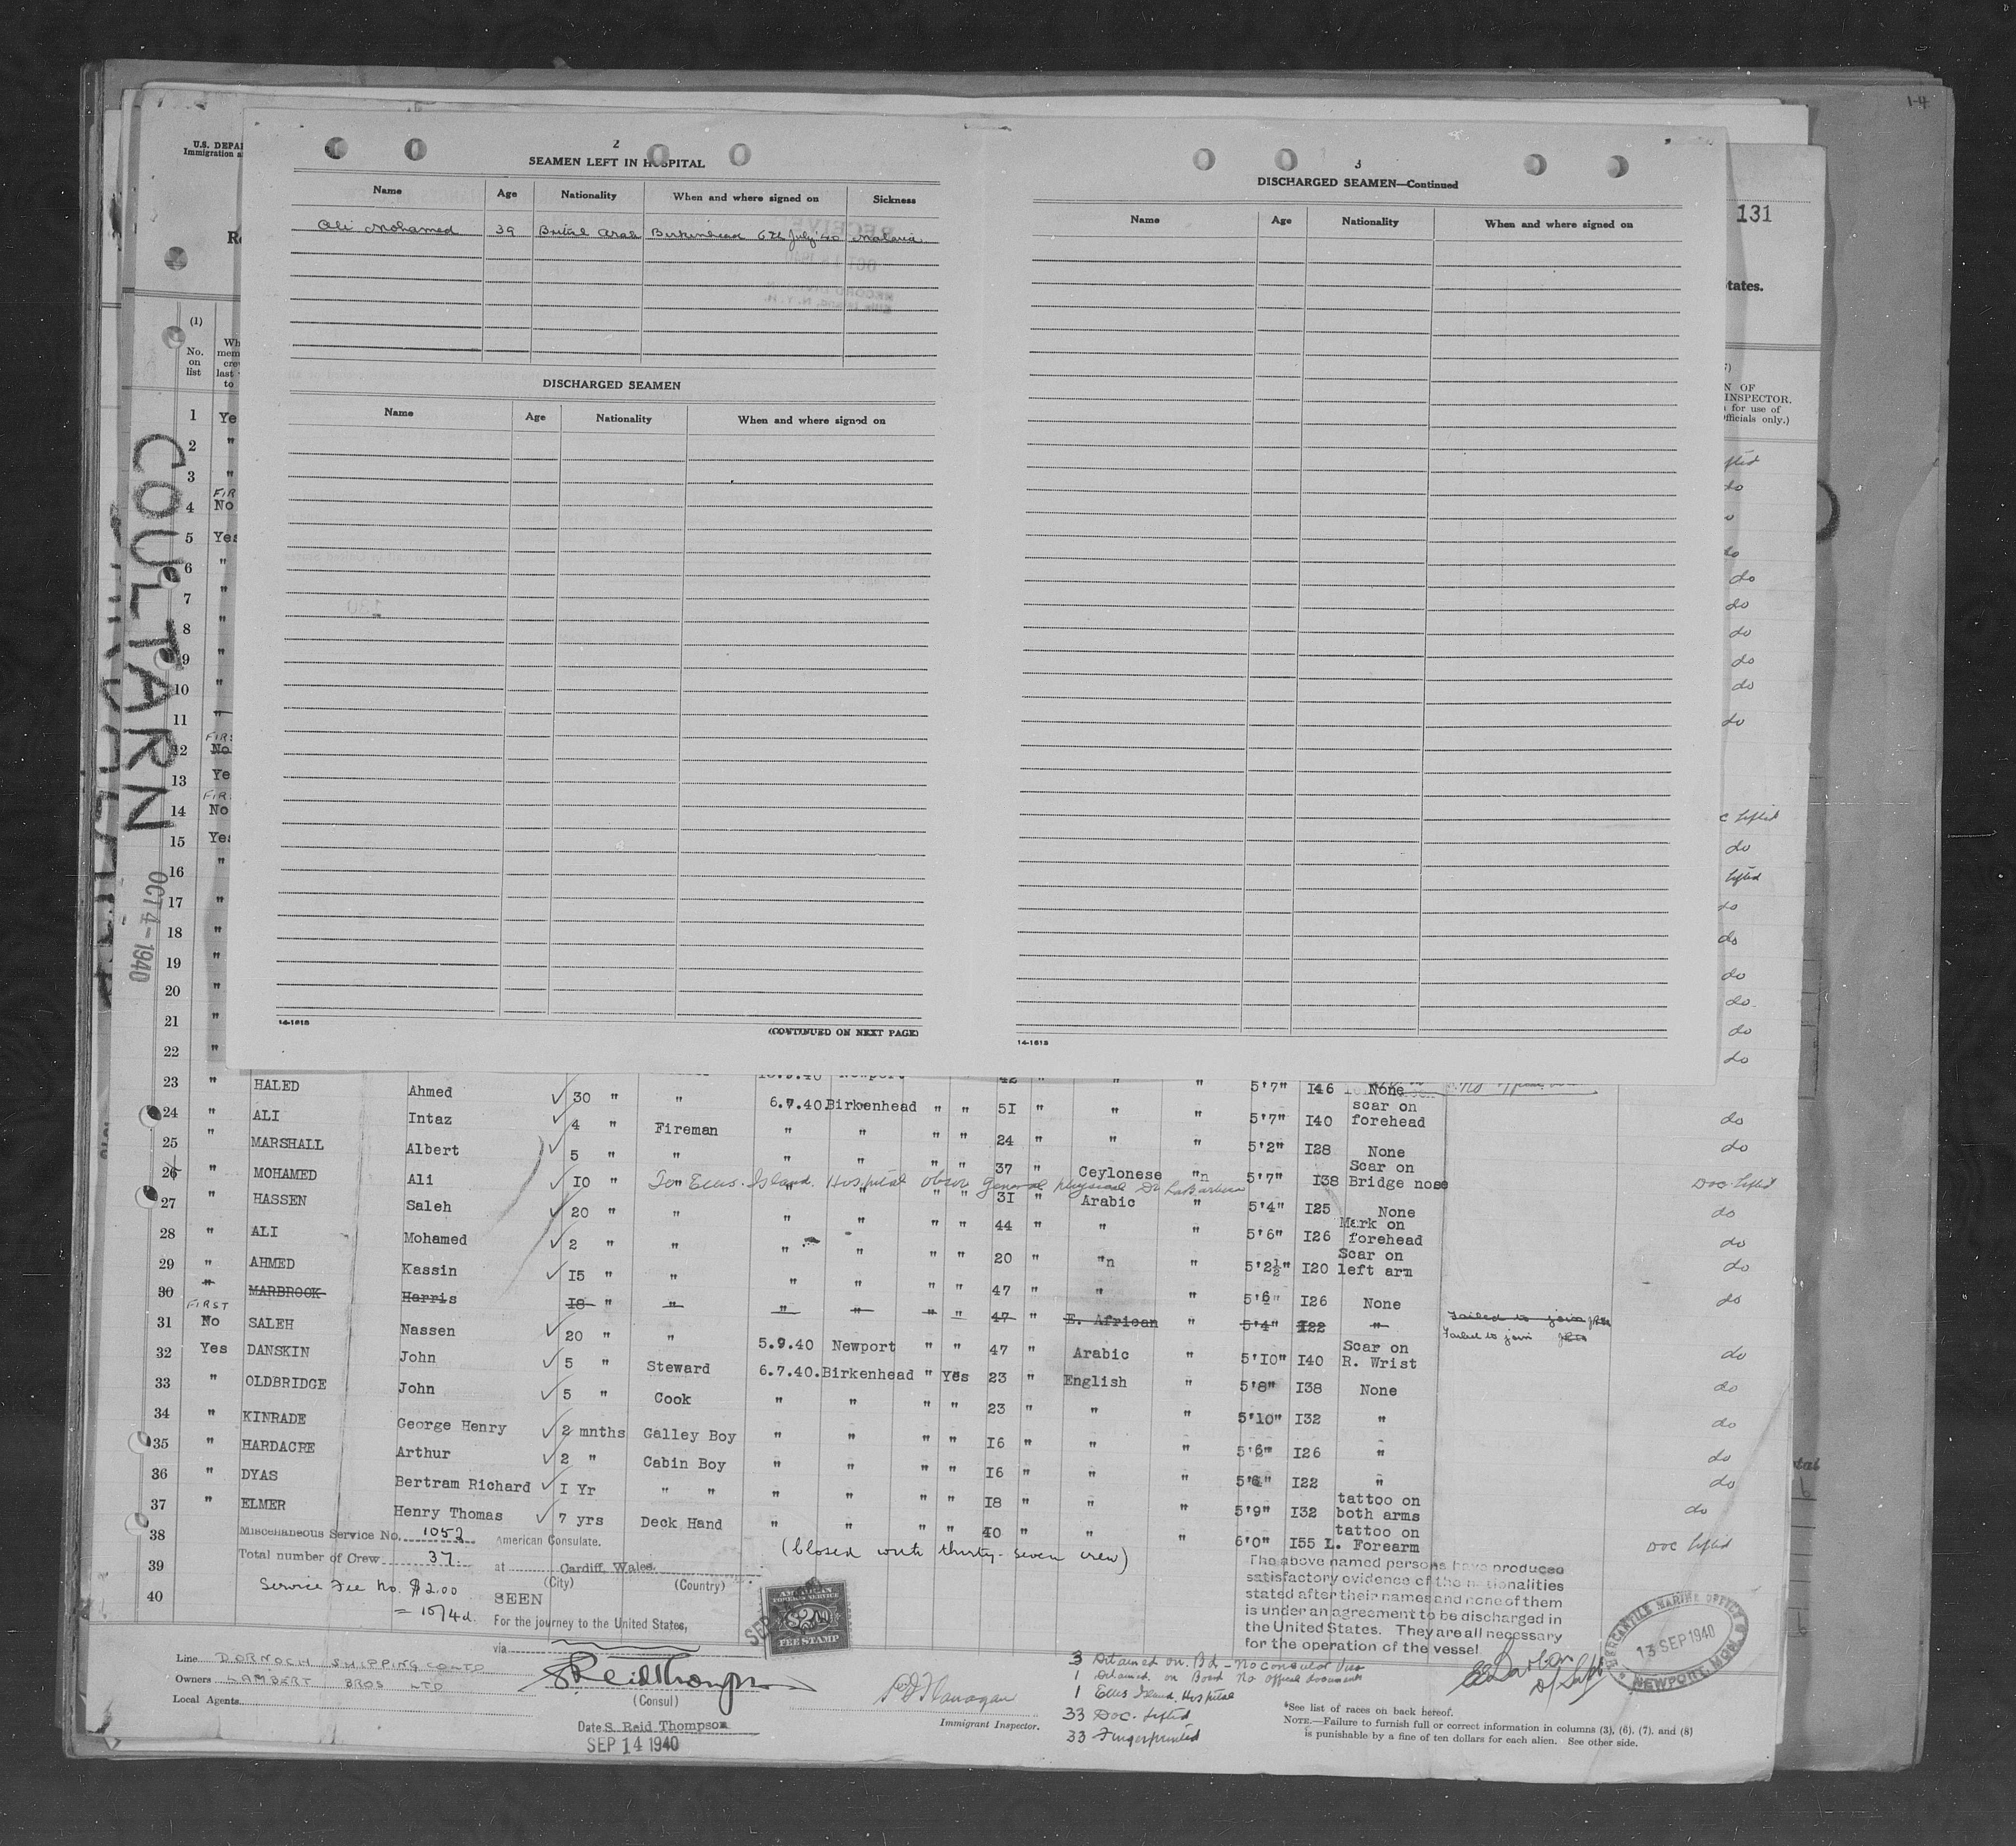 1-4
U.S. DEPA
Immigration a
2
SEAMEN LEFT IN HOSPITAL
Name Age Nationality When and where signed on Sickness
Ali Mohamed 39 British Arab Birkenhead 6th July '40 Malaria
DISCHARGED SEAMEN
Name Age Nationality When and where signed on
14-1618
(CONTINUED ON NEXT PAGE)
3
DISCHARGED SEAMEN—Continued
Name Age Nationality When and where signed on
14-1618
131
tates.
N OF
INSPECTOR.
for use of
fficials only.)
(1)
No.
on
list
COULTARN
OCT 4-1940
1 Ye
2 "
3 "
FIR
4 No
5 Yes
6 "
7 "
8 "
9 "
10 "
11 "
FIRS
12 No
13 Ye
FIR
14 No
15 Yes
16 "
17 "
18 "
19 "
20 "
21 "
22 "
23 " HALED Ahmed 30 " " 6.7.40.Birkenhead " " 5I " " " 5'7" I46 None
24 " ALI Intaz 4 " Fireman " " " " 24 " " " 5'7" I40 scar on forehead do
25 " MARSHALL Albert 5 " " " " " " 37 " Ceylonese "n 5'2" I28 None do
26 " MOHAMED Ali I0 " " " " " " 3I " Arabic " 5'7" I38 Scar on Bridge nose Doc. Lifted
To Ellis Island Hospital observ general physical Dr La Barbera
27 " HASSEN Saleh 20 " " " " " " 44 " " " 5'4" I25 None do
28 " ALI Mohamed 2 " " " " " " 20 " "n " 5'6" I26 Mark on forehead do
29 " AHMED Kassin I5 " " " " " " 47 " " " 5'2½" I20 Scar on left arm do
30 " MARBROOK Harris I8 " " " " " " 47 " E. African " 5'6" I26 None do
FIRST
31 No SALEH Nassen 20 " " 5.9.40 Newport " " 47 " Arabic " 5'4" I22 " Failed to join
Failed to join
32 Yes DANSKIN John 5 " Steward 6.7.40.Birkenhead " Yes 23 " English " 5'10" I40 Scar on R. Wrist do
33 " OLDBRIDGE John 5 " Cook " " " " 23 " " " 5'8" I38 None do
34 " KINRADE George Henry 2 mnths Galley Boy " " " " I6 " " " 5'10" I32 " do
35 " HARDACRE Arthur 2 " Cabin Boy " " " " I6 " " " 5'6" I26 " do
36 " DYAS Bertram Richard I Yr " " " " " " I8 " " " 5'6" I22 " do
37 " ELMER Henry Thomas 7 yrs Deck Hand " " " " 40 " " " 5'9" I32 tattoo on both arms do
38 6'0" I55 tattoo on L. Forearm Doc Lifted
39
40
Miscellaneous Service No. 1052
Total number of Crew 37.
Service Fee No. $2.00
= 10/4d.
American Consulate.
at Cardiff, Wales.
(City) (Country)
SEEN
For the journey to the United States,
via
(Closed with thirty-seven crew)
AMERICAN
FOREIGN SERVICE
$2.00
FEE STAMP
The above named persons have produced
satisfactory evidence of the nationalities
stated after their names and none of them
is under an agreement to be discharged in
the United States. They are all necessary
for the operation of the vessel
MERCANTILE MARINE OFFICE
13 SEP 1940
NEWPORT, MON.
Line DORNOCH SHIPPING CO LTD
Owners LAMBERT BROS LTD
Local Agents
S Reid Thompson
(Consul)
Date S. Reid Thompson
SEP 14 1940
Flanagan
Immigrant Inspector.
3 Detained on Bd - No consular visa
1 Detained on Board No official document
1 Ellis Island Hospital
33 Doc. Lifted
33 Fingerprinted
*See list of races on back hereof.
NOTE.—Failure to furnish full or correct information in columns (3), (6), (7), and (8)
is punishable by a fine of ten dollars for each alien. See other side.